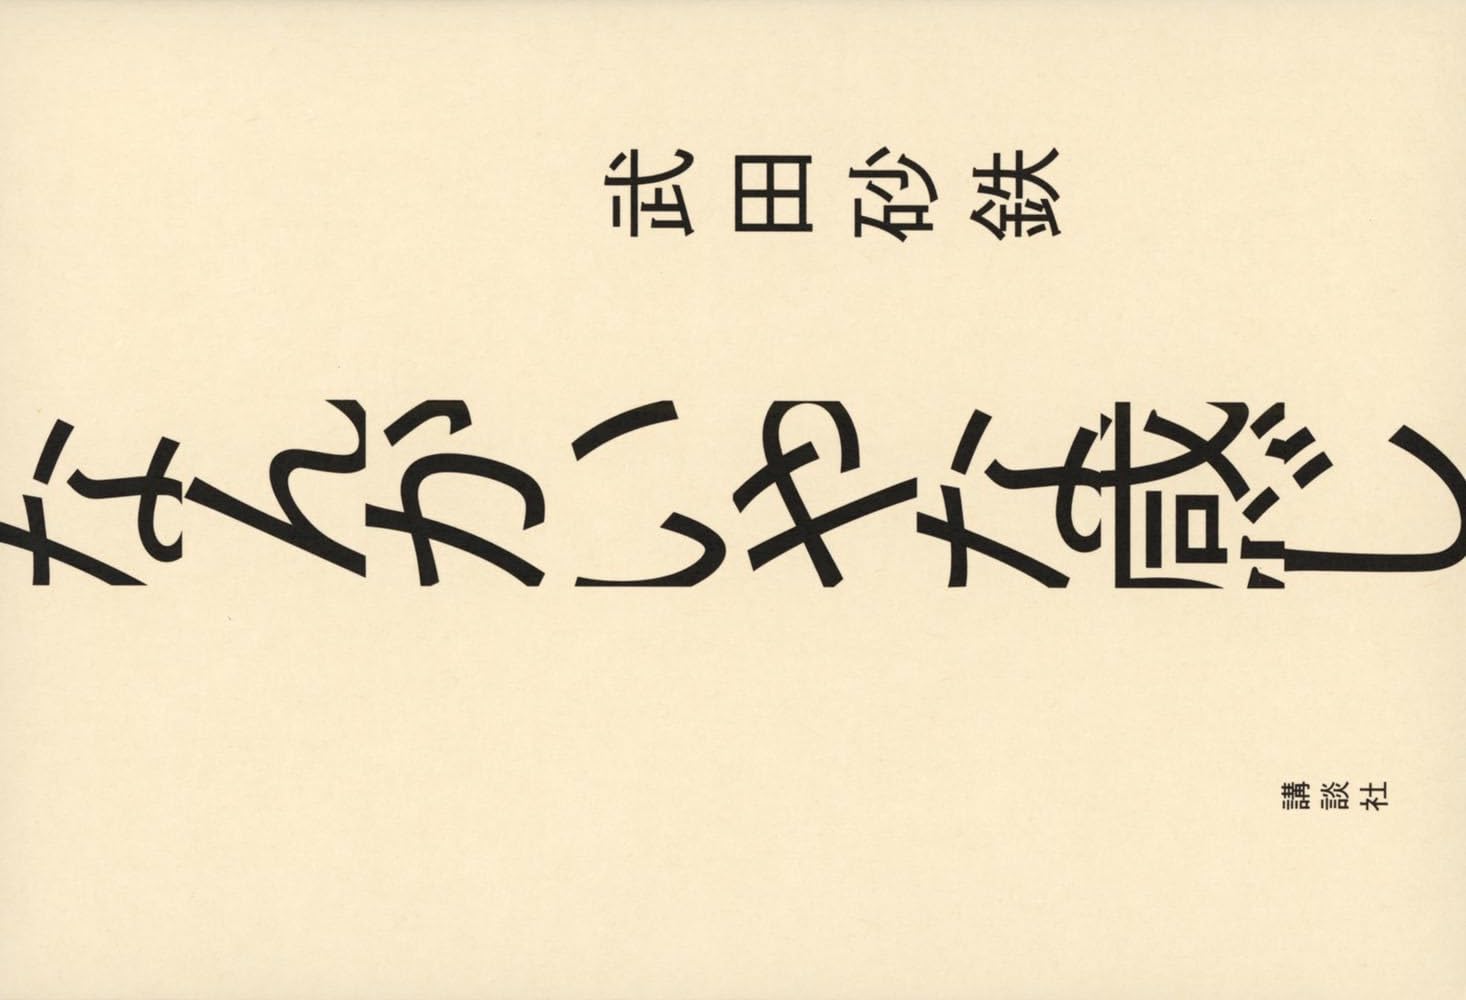 武田砂鉄
なんかいやな感じ
講談社